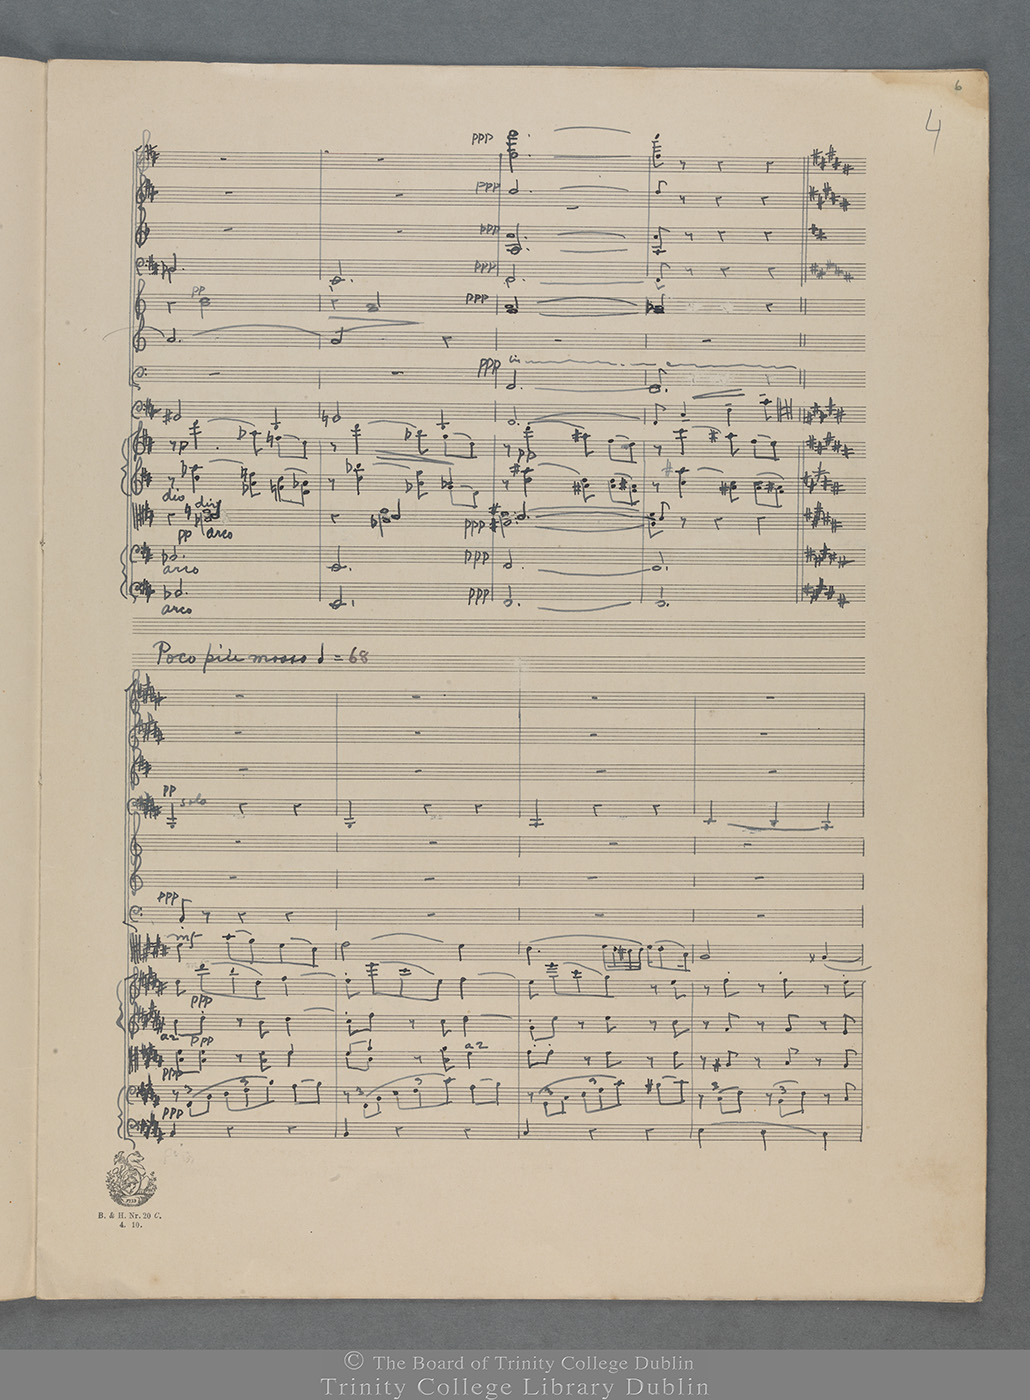 6
4
ppp
ppp
ppp
ppp
pp
ppp
ppp
p
pp
div
div
pp arco
ppp
arco
ppp
arco
ppp
Poco più mosso 𝅗𝅥 = 68
pp
solo
ppp
mf
ppp
a2 ppp
a2
ppp
ppp
3 3 3 3 3 3 3 3
B. & H. Nr. 20 C.
4. 10.
© The Board of Trinity College Dublin
Trinity College Library Dublin